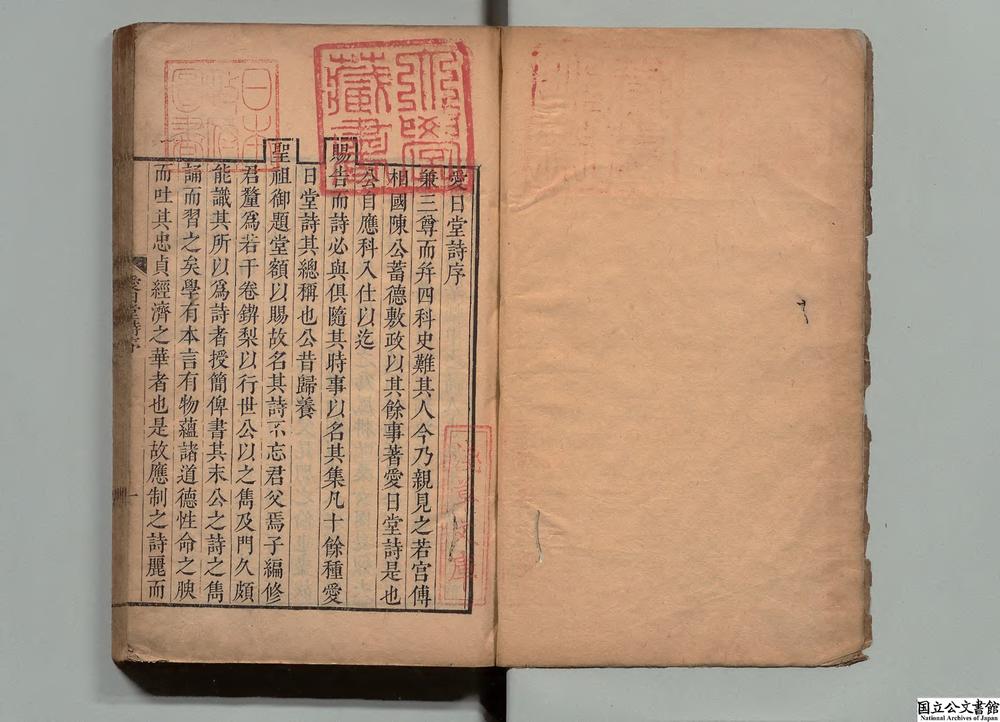 愛日堂詩序
兼三尊而幷四科史難其人今乃親見之若宮傅
相國陳公蓄德敷政以其餘事著愛日堂詩是也
公自應科入仕以迄
賜告而詩必與俱隨其時事以名其集凡十餘種愛
日堂詩其總稱也公昔歸養
聖祖御題堂額以賜故名其詩不忘君父焉子編修
君釐爲若干卷鍥梨以行世公以之雋及門久頗
能識其所以爲詩者授簡俾書其末公之詩之雋
誦而習之矣學有本言有物蘊諸道德性命之腴
而吐其忠貞經濟之華者也是故應制之詩麗而
愛日堂詩序
一
日本政府圖書
淺草文庫
国立公文書館
National Archives of Japan